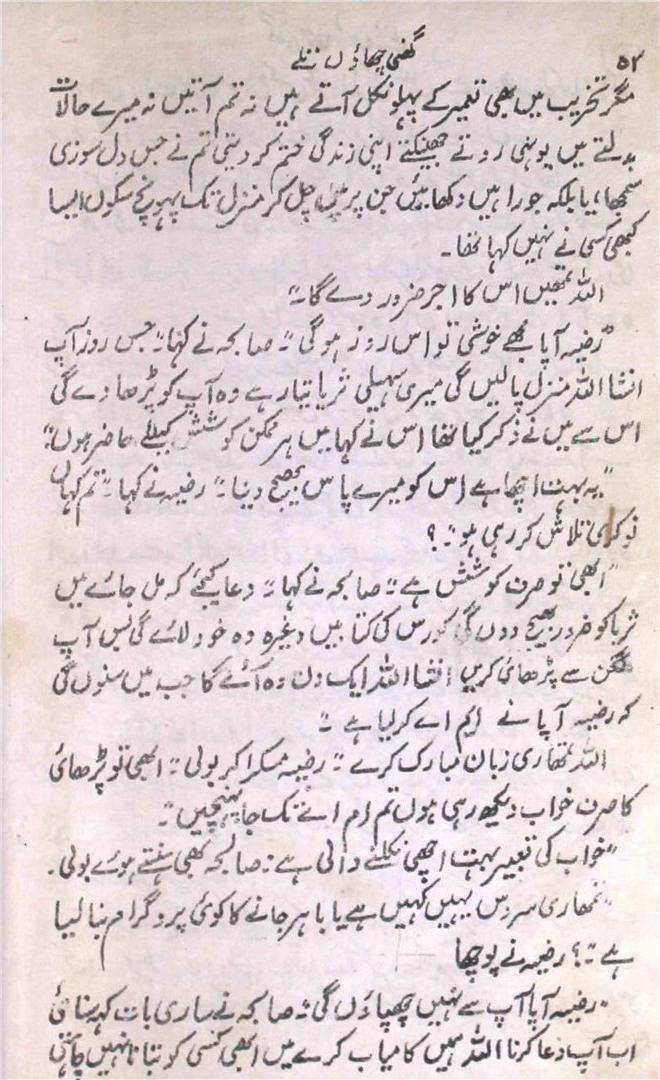 ۵۲
گھنی چھاؤں تلے
مگر تخریب میں بھی تعمیر کے پہلو نکل آتے ہیں نہ تم آتیں نہ میرے حالات
بدلتے میں یونہی روتے جھینکتے اپنی زندگی ختم کر دیتی تم نے جس دل سوزی
سمجھایا بلکہ جو راہیں دکھائیں جن پر میں چل کر منزل تک پہونچ سکوں ایسا
کبھی کسی نے نہیں کہا تھا۔
اللہ تمھیں اس کا اجر ضرور دے گا۔"
"رضیہ آپا مجھے خوشی تو اس روز ہو گی" صالحہ نے کہا "جس روز آپ
انشا اللہ منزل پا لیں گی میری سہیلی ثریا تیار ہے وہ آپ کو پڑھا دے گی
اس سے میں نے ذکر کیا تھا اس نے کہا میں ہر ممکن کوشش کیلئے حاضر ہوں"
"یہ بہت اچھا ہے اس کو میرے پاس بھیج دینا" رضیہ نے کہا "تم کہاں
نوکری تلاش کر رہی ہو"؟
"ابھی تو صرف کوشش ہے" صالحہ نے کہا "دعا کیجئے کہ مل جائے میں
ثریا کو ضرور بھیج دوں گی کورس کی کتابیں وغیرہ وہ خود لائے گی بس آپ
لگن سے پڑھائی کریں انشا اللہ ایک دن وہ آئے گا جب میں سنوں گی
کہ رضیہ آپا نے ایم اے کر لیا ہے"
اللہ تمھاری زبان مبارک کرے" رضیہ مسکرا کر بولی "ابھی تو پڑھائی
کا صرف خواب دیکھ رہی ہوں تم ام اے تک جا پہنچیں"۔
"خواب کی تعبیر بہت اچھی نکلنے والی ہے" صالحہ بھی ہنستے ہوئے بولی۔
"تمھاری سروس یہیں کہیں ہے یا باہر جانے کا کوئی پروگرام بنا لیا
ہے"؟ رضیہ نے پوچھا
"رضیہ آپا آپ سے نہیں چھپاؤں گی" صالحہ نے ساری بات کہہ سنائی
اب آپ دعا کرنا اللہ ہمیں کامیاب کرے میں ابھی کسی کو بتانا نہیں چاہتی